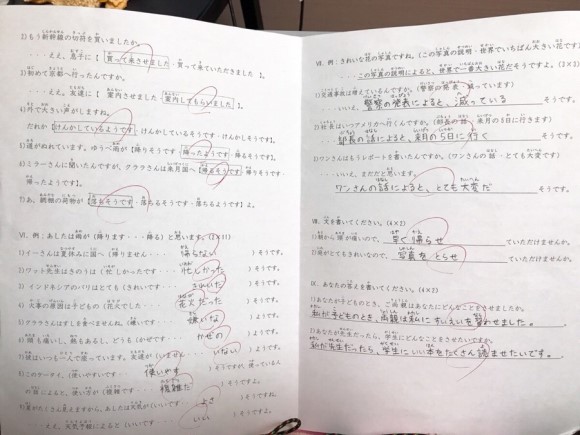 2)もう新幹線の切符を買いましたか。
・・・ええ、息子に【買って来させました・買って来ていただきました】。
3)初めて京都へ行ったんですか。
・・・ええ、友達に【案内させました・案内してもらいました】。
4)外で大きい声がしますね。
だれか【けんかしているようです・けんかしているそうです・けんかしそうです】。
5)道がぬれています。ゆうべ雨が【降りそうです・降ったようです・降るそうです】。
6)ミラーさんに聞いたんですが、クララさんは来月国へ【帰るそうです・帰りそうです・
帰ったようです】。
7)あ、網棚の荷物が【落ちそうです・落ちるそうです・落ちるようです】よ。
Ⅵ. 例:あしたは雨が(降ります・・・降る)と思います。(2×11)
1)イーさんは夏休みに国へ(帰りません・・・帰らない)そうです。
2)グプタ先生はきのうは(忙しかったです・・・忙しかった)そうです。
3)インドネシアのバリはとても(きれいです・・・きれいだ)そうです。
4)火事の原因は子どもの(花火でした・・・花火だった)そうです。
5)クララさんはすしを食べませんね。(嫌いです・・・嫌いな)ようです。
6)頭も痛いし、熱もあるし、どうも(かぜです・・・かぜの)ようです。
7)彼はいつも一人で座っています。友達が(いません・・・いない)ようです。
8)このケータイ、(使いやすいです・・・使いやす)そうですが、使っている人
の話によると、使い方が(複雑です・・・複雑だ)そうですよ。
9)星がたくさん見えますから、あしたは天気が(いいです・・・よさ)そうですね。
・・・ええ、天気予報によると(いい・・・いい)そうですよ。
Ⅶ. 例:きれいな花の写真ですね。(この写真の説明・世界でいちばん大きい花です)
・・・この写真の説明によると、世界で一番大きい花だそうですよ。(3×3)
1)交通事故は増えているんですか。(警察の発表・減っています)
・・・いいえ、警察の発表によると、減っているそうです。
2)社長はいつアメリカへ行くんですか。(部長の話・来月の5日に行きます)
部長の話によると、来月の5日に行くそうです。
3)ワンさんはもうレポートを書いたんですか。(ワンさんの話・とても大変です)
・・・いいえ、まだだと思います。
ワンさんの話によると、とても大変だそうです。
Ⅷ. 文を書いてください。(4×2)
1)朝から頭が痛いので、早く帰らせていただけませんか。
2)庭がとてもきれいなので、写真をとらせていただけませんか。
Ⅸ. あなたの答えを書いてください。(4×2)
1)あなたが子どものとき、ご両親はあなたにどんなことをさせましたか。
私が子どものとき、両親は私にすいえいを習わせました。
2)あなたが先生だったら、学生にどんなことをさせたいですか。
私が先生だったら、学生にいい本をたくさん読ませたいです。